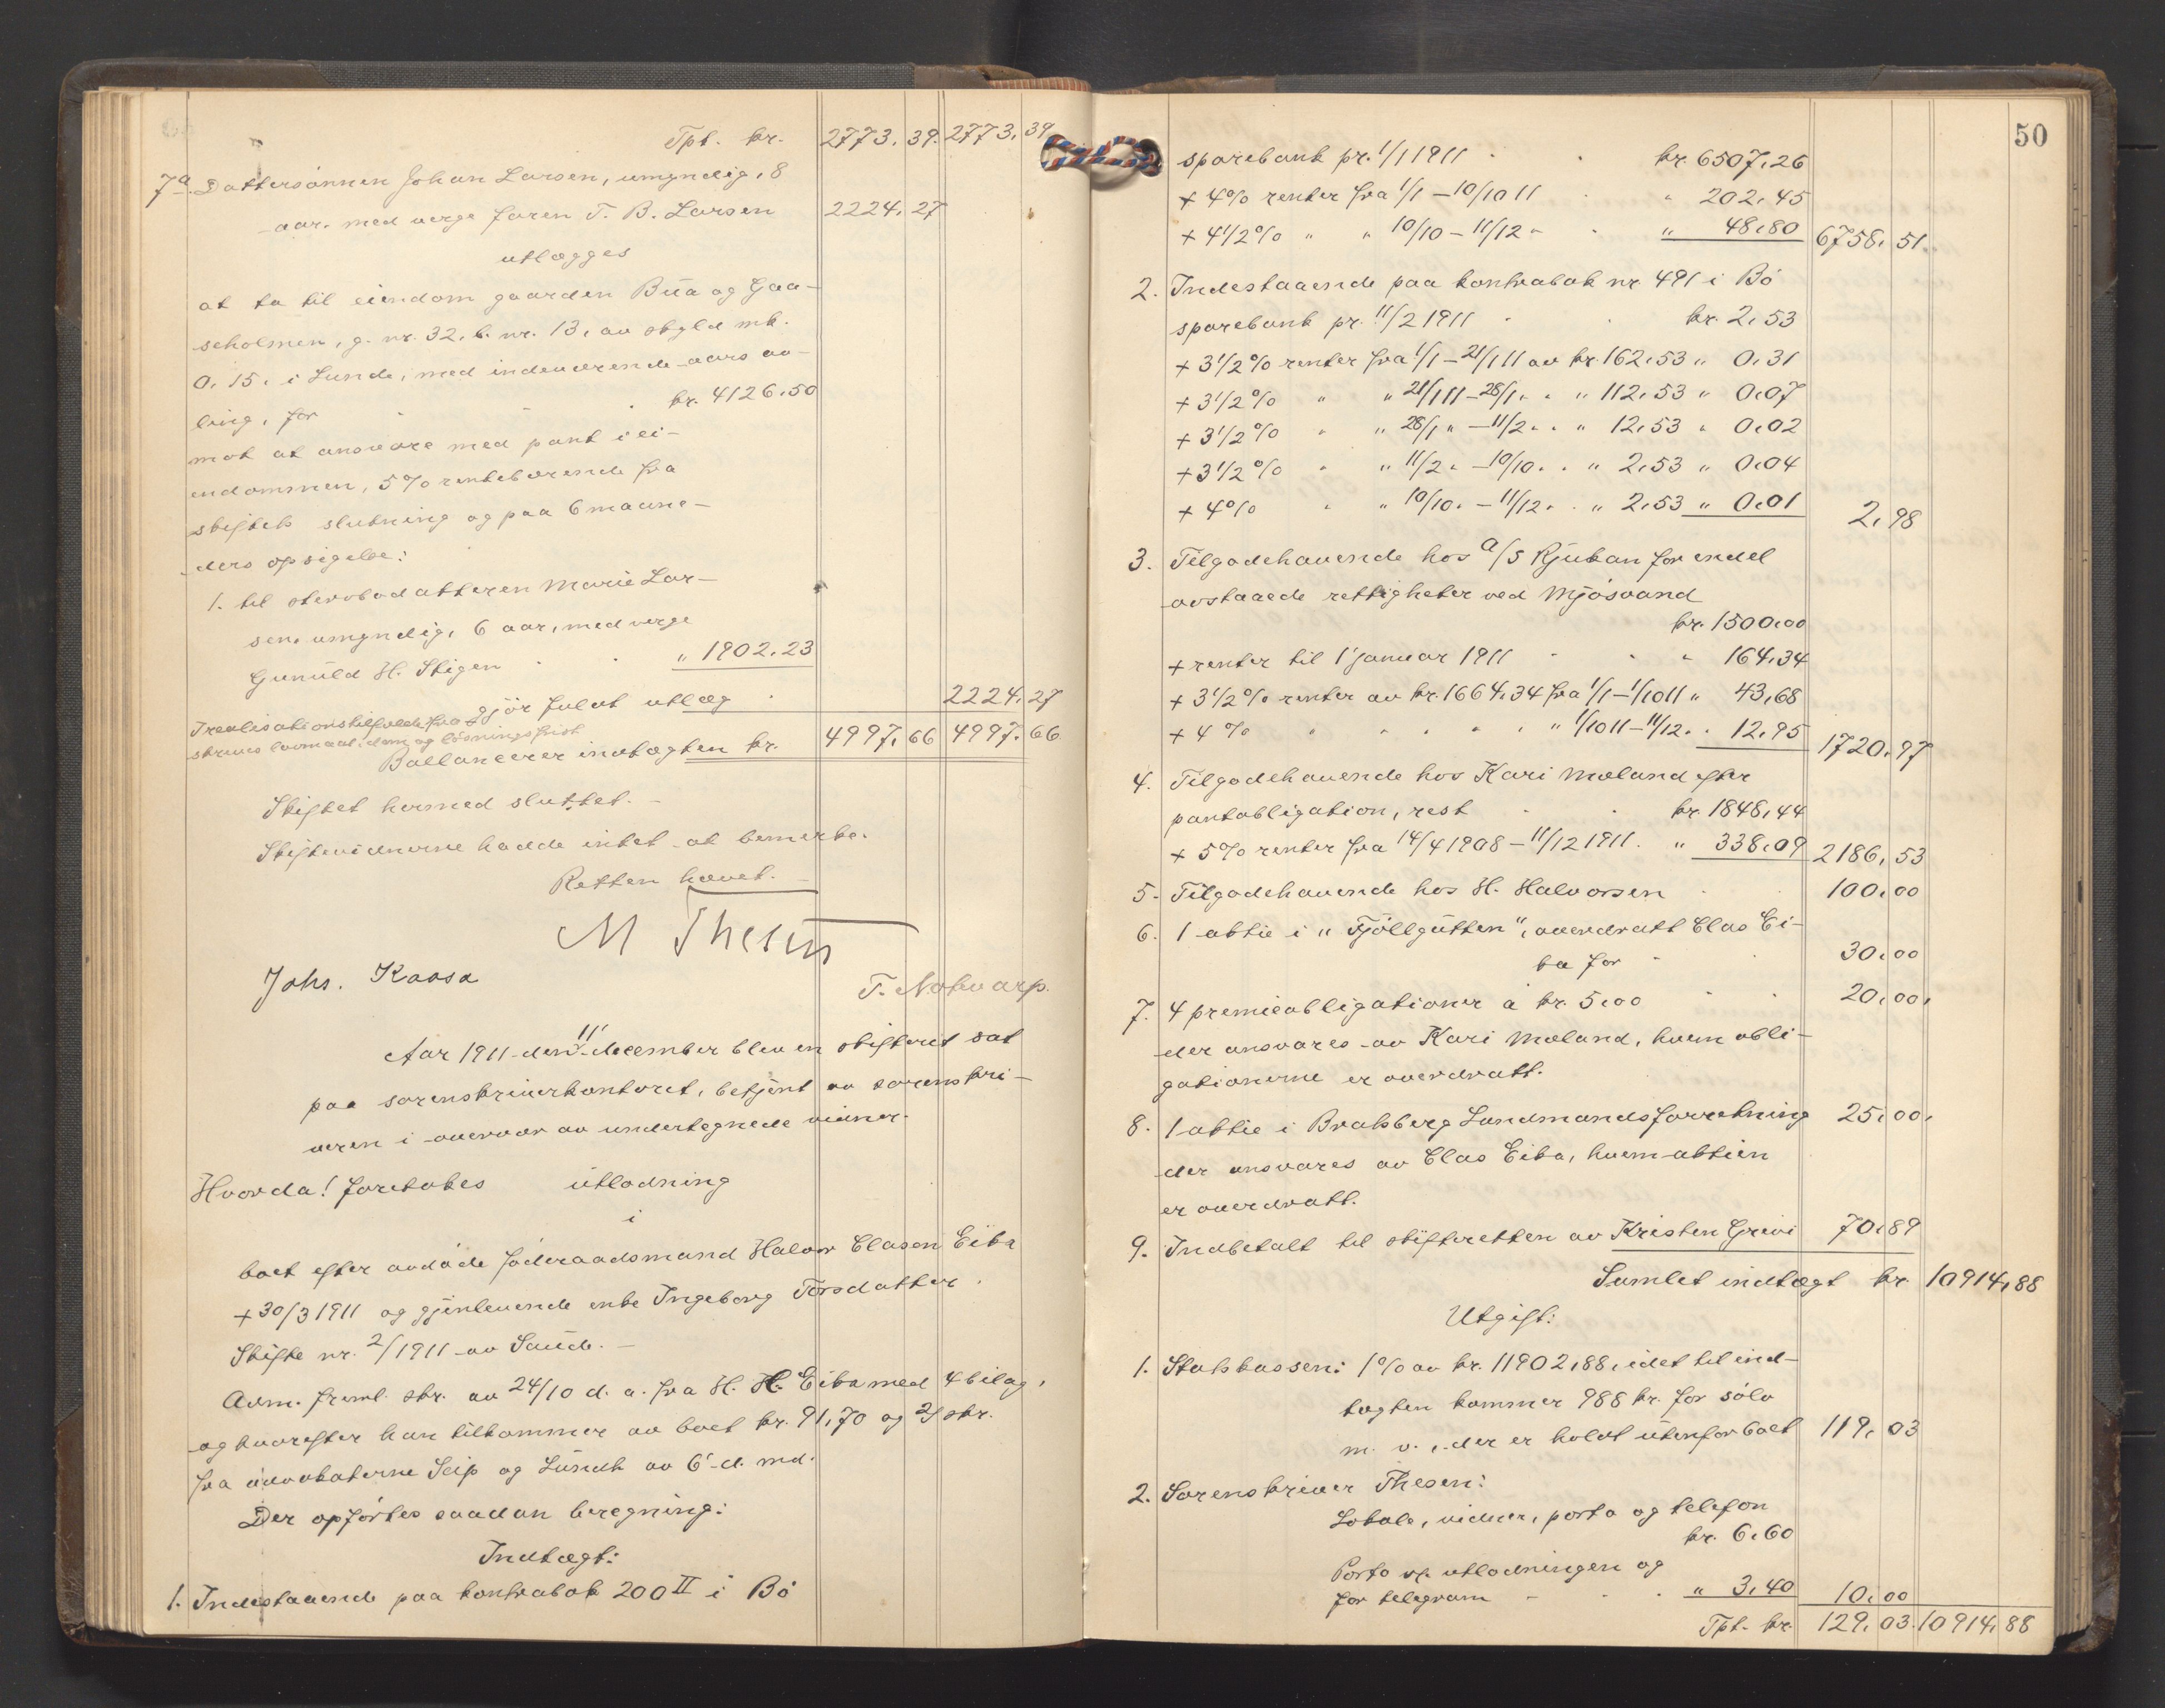 Tpt. kr. 2773,39. 2773,39
7a. Dattersønnen Johan Larsen, umyndig, 8
aar, med verge faren T. B. Larsen 2224,27
utlægges
at ta til eiendom gaarden Bua og Gaa-
seholmen, g. nr. 32, b. nr. 13, av skyld mk.
0,15, i Lunde, med indeværende aars av-
ling, for kr. 4126,50
mot at ansvare med pant i ei-
endommen, 5% rentebærende fra
skiftets slutning og paa 6 maane-
ders opsigelse:
1. til stervbodatteren Marie Lar-
sen, umyndig, 6 aar, med verge
Gunuld H. Skigen " 1902,23
gjør fuldt utlæg 2224,27
I realisationstilfælde fra-
skrives lovmaal, dom og løsningsfrist
Ballancerer indtægten kr. 4997,66 4997,66
Skiftet hermed sluttet. -
Skiftevidnerne hadde intet at bemerke.
Retten hævet. -
M Thesen
Johs. Kaasa
Aar 1911 den 11' december blev en skifteret sat
paa sorenskriverkontoret, betjent av sorenskri-
veren i overvær av undertegnede vidner.
Hvorda! foretokes utlodning
i
boet efter avdøde føderaadsmand Halvor Clasen Eika
+ 30/3 1911 og gjenlevende enke Ingeborg Torsdatter.
Skifte nr. 2/1911 av Saude. -
Adm. freml. skr. av 24/10 d. a. fra H. H. Eika med 4 bilag,
og hvorefter han tilkommer av boet kr. 91,70 og 2) skr.
fra advokaterne Seip og Lundh av 6' d. md.
Der opførtes saadan beregning:
Indtægt:
1. Indestaaende paa kontrabok 200 II i Bø
50
sparebank pr. 1/1 1911 kr. 6507,26
+ 4% renter fra 1/1 - 10/10 11 " 202,45
+ 4 1/2% " " 10/10 - 11/12 " " 48,80 6758,51.
2. Indestaaende paa kontrabok nr. 491 i Bø
sparebank pr. 11/2 1911 kr. 2,53
+ 3 1/2% renter fra 1/1 - 21/1 11 av kr. 162,53 " 0,31
+ 3 1/2% " " 21/1 11 - 28/1 " " " 112,53 " 0,07
+ 3 1/2% " " 28/1 " - 11/2 " " " 12,53 " 0,02
+ 3 1/2% " " 11/2 " - 10/10 " " " 2,53 " 0,04
+ 4% " " 10/10 " - 11/12 " " " 2,53 " 0,01 2,98
3. Tilgodehavende hos a/s Rjukan for endel
avstaaede rettigheter ved Mjøsvand
kr. 1500,00
+ renter til 1' januar 1911 " 164,34
+ 3 1/2% renter av kr. 1664,34 fra 1/1 - 1/10 11 " 43,68
+ 4% " " " " " 1/10 11 - 11/12 " " 12,95 1720,97
4. Tilgodehavende hos Kari Moland efter
pantobligation, rest kr. 1848,44
+ 5% renter fra 14/4 1908 - 11/12 1911. " 338,09 2186,53
5. Tilgodehavende hos H. Halvorsen 100,00
6. 1 aktie i "Fjøllgutten", overdratt Clas Ei-
ka for 30,00
7. 4 premieobligationer a kr. 5,00 20,00,
der ansvares av Kari Moland, hvem obli-
gationerne er overdratt.
8. 1 aktie i Bratsberg Landmandsforretning 25,00,
der ansvares av Clas Eika, hvem aktien
er overdratt.
9. Indbetalt til skifteretten av Kristen Grivi 70,89
Samlet indtægt kr. 10914,88
Utgift:
1. Statskassen: 1% av kr. 11902,88, idet til ind-
tægten kommer 988 kr. for sølv
m. v., der er holdt utenfor boet 119,03
2. Sorenskriver Thesen:
Lokale, vidner, porto og telefon
kr. 6,60
Porto v. utlodningen og
for telegram " 3,40 10,00
Tpt. kr. 129,03. 10914,88